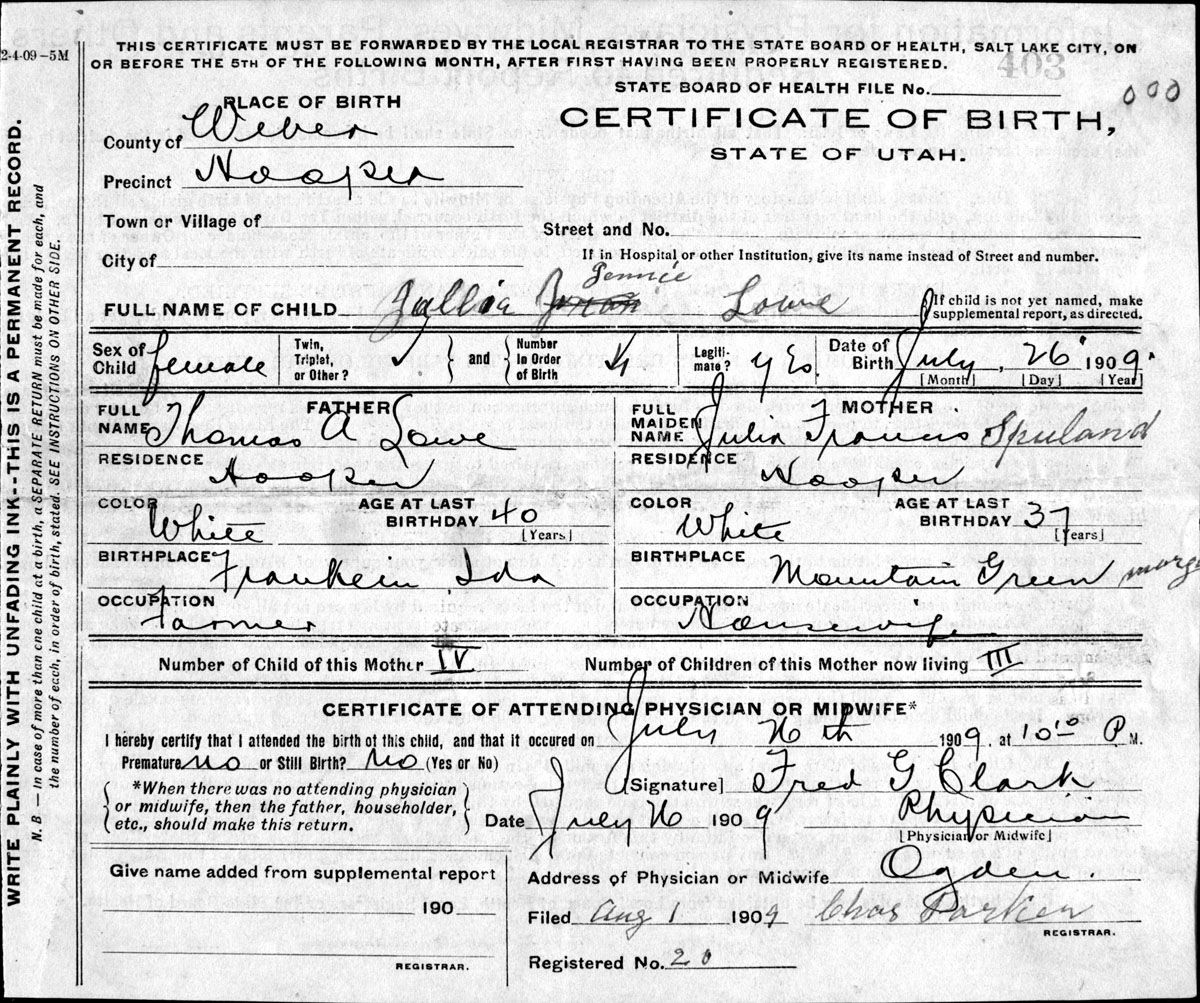 2-4-09-5M
THIS CERTIFICATE MUST BE FORWARDED BY THE LOCAL REGISTRAR TO THE STATE BOARD OF HEALTH, SALT LAKE CITY, ON
OR BEFORE THE 5TH OF THE FOLLOWING MONTH, AFTER FIRST HAVING BEEN PROPERLY REGISTERED.
403
STATE BOARD OF HEALTH FILE No.
000
PLACE OF BIRTH
CERTIFICATE OF BIRTH,
STATE OF UTAH.
County of Weber
Precinct Hooper
Town or Village of
Street and No.
City of
If in Hospital or other Institution, give its name instead of Street and number.
Jennie
FULL NAME OF CHILD Lowe
If child is not yet named, make
supplemental report, as directed.
Sex of Child female
Twin, Triplet, or Other? ✓ and Number In Order of Birth 4
Legiti-mate? yes
Date of Birth July, 26 1909.
[Month] [Day] [Year]
FATHER
FULL NAME Thomas A Lowe
RESIDENCE Hooper
COLOR White
AGE AT LAST BIRTHDAY 40
[Years]
BIRTHPLACE Franklin Ida
OCCUPATION Farmer
MOTHER
FULL MAIDEN NAME Julia Francis
RESIDENCE Hooper
COLOR White
AGE AT LAST BIRTHDAY 37
[Years]
BIRTHPLACE Mountain Green
OCCUPATION Housewife
Number of Child of this Mother IV
Number of Children of this Mother now living III
CERTIFICATE OF ATTENDING PHYSICIAN OR MIDWIFE*
I hereby certify that I attended the birth of this child, and that it occured on July 26th 1909, at 10 10 P M.
Premature No or Still Birth? No (Yes or No)
*When there was no attending physician
or midwife, then the father, householder,
etc., should make this return.
[Signature] Fred G Clark
Date July 26 1909
Physician
[Physician or Midwife]
Give name added from supplemental report
190
REGISTRAR.
Address of Physician or Midwife Ogden.
Filed Aug 1 1909 Chas Parker
REGISTRAR.
Registered No. 20
WRITE PLAINLY WITH UNFADING INK--THIS IS A PERMANENT RECORD.
N. B. — In case of more than one child at a birth, a SEPARATE RETURN must be made for each, and
the number of each, in order of birth, stated. SEE INSTRUCTIONS ON OTHER SIDE.